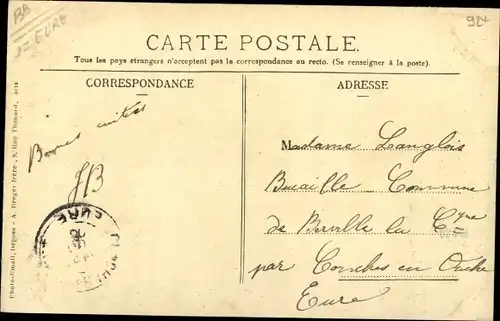 BB
1= EURE
92+
CARTE POSTALE.
Tous les pays étrangers n'acceptent pas la correspondance au recto. (Se renseigner à la poste).
CORRESPONDANCE
ADRESSE
Photo-Email, Dépose - A. Breger frères, 9, Rue Thénard, Paris
Bonnes amitiés
JB
EURE
Madame Langlois
Bucaille Commune
de Berville la Cgne
par Conches en Ouche
Eure